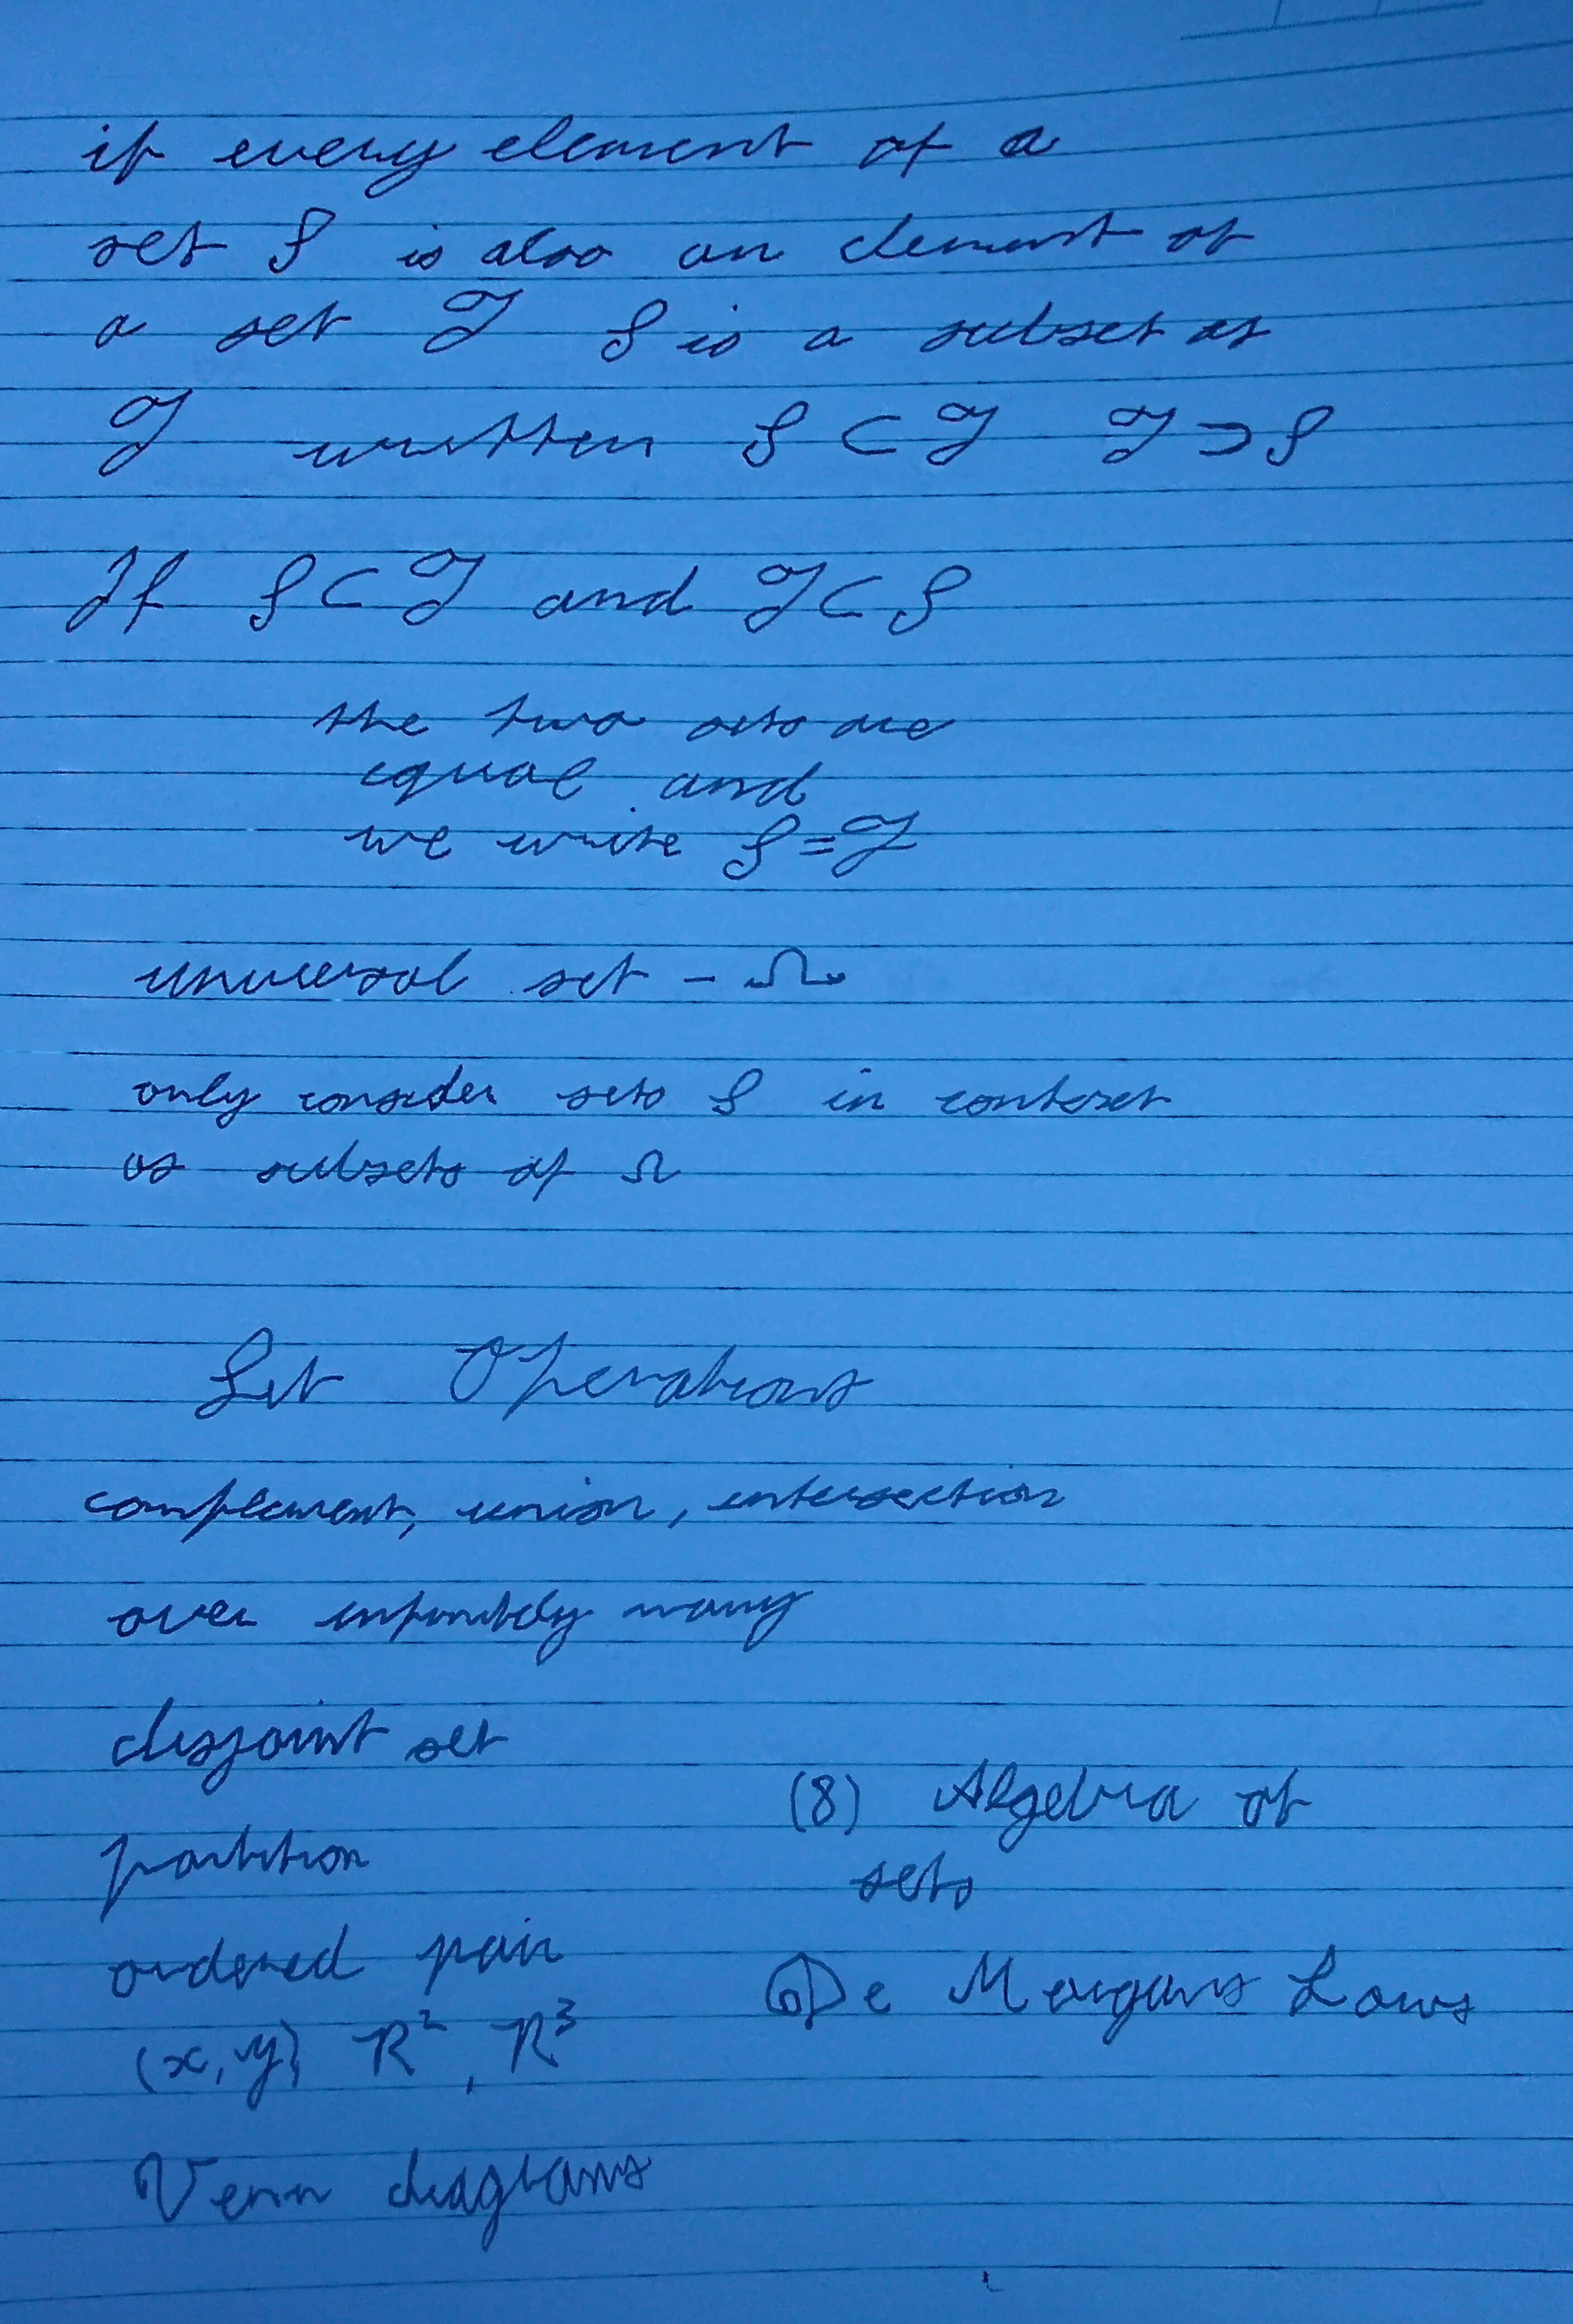 if every element of a
set S is also an element of
a set T S is a subset of
T written S ⊂ T T ⊃ S
If S ⊂ T and T ⊂ S
the two sets are
equal and
we write S = T
universal set - Ω
only consider sets S in context
as subsets of Ω
Set Operations
complement, union, intersection
over infinitely many
disjoint set
partition
ordered pair
(x, y) R², R³
Venn diagrams
(8) Algebra of
sets
De Morgans Laws